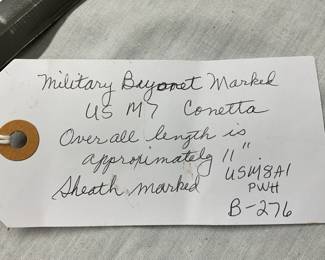 Military Bayonet Marked
US M7 Conetta
Over all length is
approximately 11".
Sheath marked USM8A1
PWH
B-276